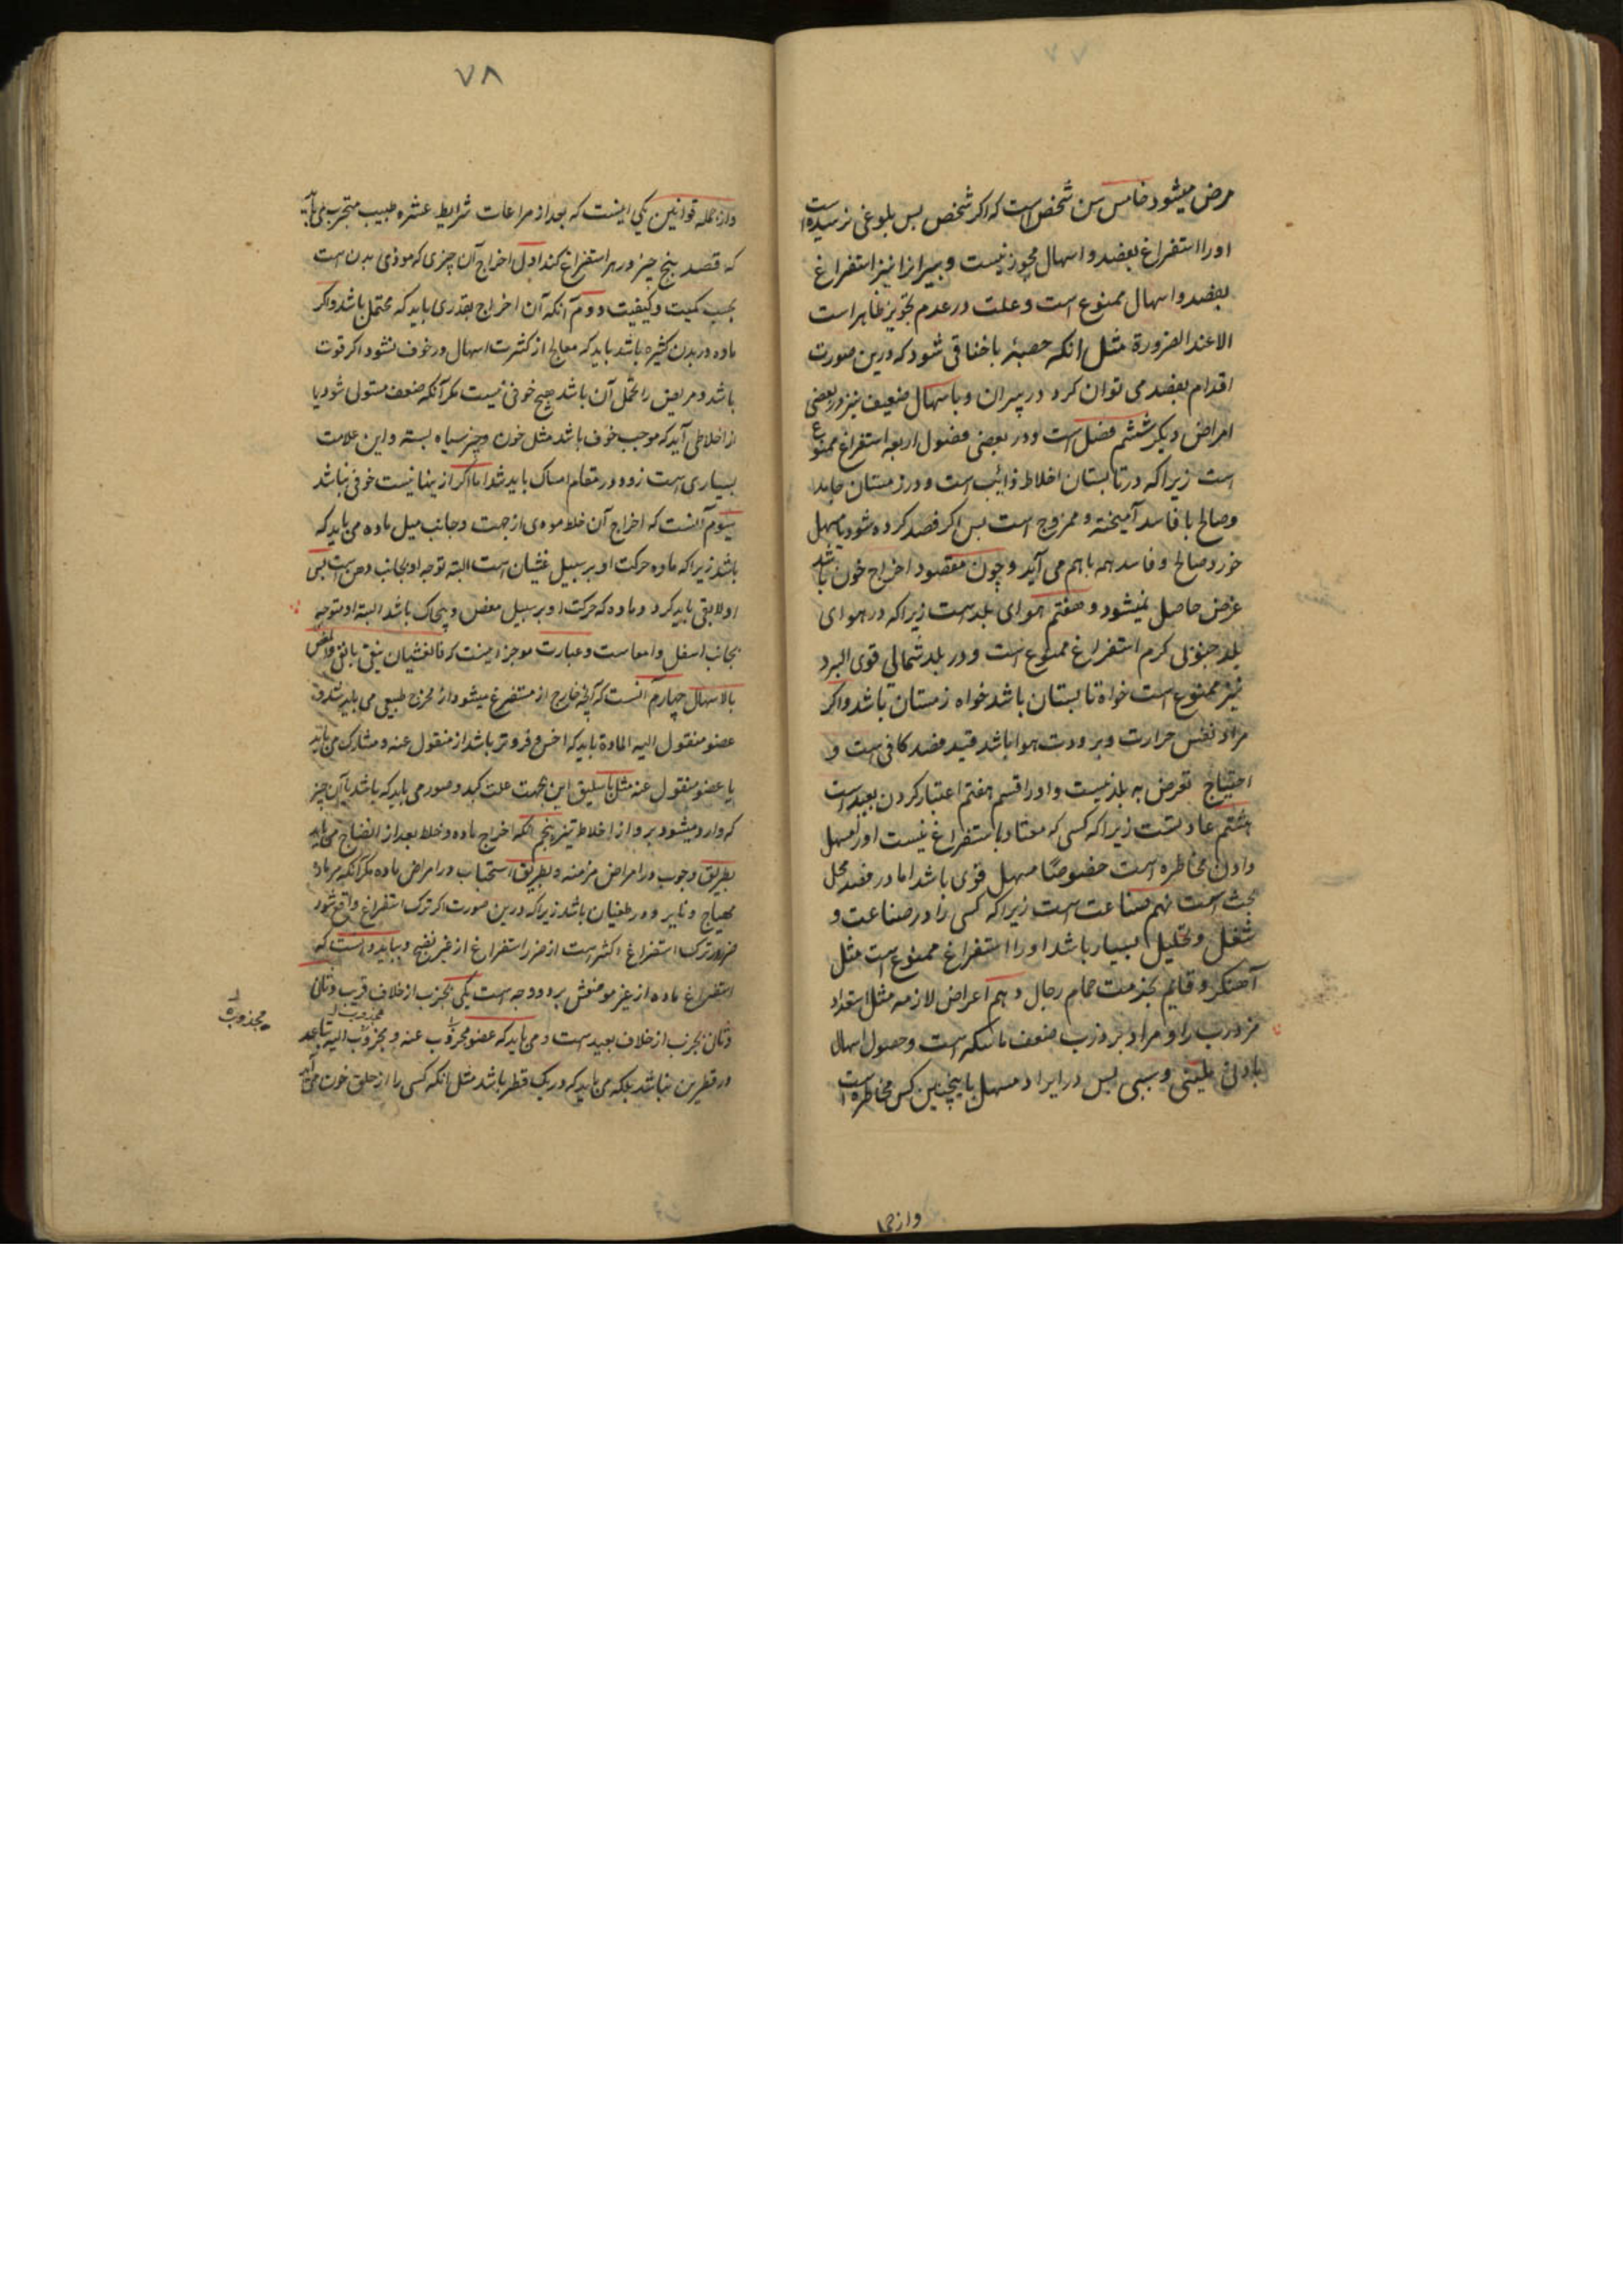 ۷۷
مرض میشود خامس سن شخص است که اکر شخص بسن بلوغی نرسیده است
اورا استفراغ بفصد و اسهال مجوز نیست و پیرانرا نیز استفراغ
بفصد و اسهال ممنوع است و علت در عدم تجویز ظاهر است
الا عند الضرورة مثل انکه حصبه یا خناقی شود که درین صورت
اقدام بفصد می توان کرد در پیران و باسهال ضعیف نیز در بعضی
امراض دیکر ششم فصل است و در بعضی فصول اربعه استفراغ ممنوع
است زیرا که در تابستان اخلاط ذائب است و در زمستان جامد
و صالح با فاسد آمیخته و ممزوج است بس اکر فصد کرده شود یا مسهل
خورد صالح و فاسد همه باهم می آید و چون مقصود اخراج خون باشد
غرض حاصل نمیشود و هفتم هوای بلد است زیرا که در هوای
بلد جنوبی کرم استفراغ ممنوع است و در بلد شمالی قوی البرد
نیز ممنوع است خواه تابستان باشد خواه زمستان باشد و اکر
مراد نفس حرارت و برودت هوا باشد قید فصد کافی است و
احتیاج تعرض به بلد نیست و اورا قسم هفتم اعتبار کردن بعید است
هشتم عادتست زیرا که کسی که معتاد باستفراغ نیست اورا مسهل
دادن مخاطره است خصوصًا مسهل قوی باشد اما در فصد محل
بحث است نهم صناعت است زیرا که کسی را در صناعت و
شغل و تحلیل بسیار باشد اورا استفراغ ممنوع است مثل
آهنکر و قایم بخدمت حمام رجال دهم اعراض لازمه مثل استعداد
مر ذرب را و مراد بر ذرب ضعف ماسکه است و حصول اسهال
بادنی ملینی و سببی بس در ایراد مسهل باینچنین کس مخاطره است
و از جمله
۷۸
و از جمله قوانین یکی اینست که بعد از مراعات شرایط عشره طبیب متجرب می باید
که قصد پنج چیز در هر استفراغ کند اول اخراج آن چیزی که موذی بدن است
بحسب کمیت و کیفیت دووم آنکه آن اخراج بقدری باید که محتمل باشد و اکر
ماده در بدن کثیره باشد باید که معالج از کثرت اسهال در خوف نشود اکر قوت
باشد و مریض را تحمل آن باشد هیچ خوفی نیست مکر آنکه ضعف مستولی شود یا
از اخلاطی آید که موجب خوف باشد مثل خون و چیز سیاه بسته و این علامت
بسیاری است زود در مقام امساک باید شد اما اکر ازینها نیست خوفی نباشد
سوم آنست که اخراج آن خلط موذی از جهت و جانب میل ماده می باید که
باشد زیرا که ماده حرکت او بر سبیل غثیان است البته توجه او بجانب دهن است پس
اولا بقی باید کرد و ماده که حرکت او بر سبیل مغص و پیچاک باشد البته او متوجه
بجانب اسفل و امعا ست و عبارت موجز اینست که فالغثیان ینقی بالقی والمغص
بالاسهال چهارم آنست که آنچه خارج از مستفرغ میشود از مخرج طبیعی می باید شد و
عضو منقول الیه المادة باید که اخس و فروتر باشد از منقول عنه و مشارک می باید
با عضو منقول عنه مثل باسلیق ایمن بجهت علت کبد و صور می باید که باشد با آن چیز
که وارد میشود بر و از اخلاط تیزه پنجم آنکه اخراج ماده و خلط بعد از انضاج می باید
بطریق وجوب در امراض مزمنه و بطریق استحباب در امراض حاده مکر آنکه مر ماده
مهیاج و نایر و در طغیان باشد زیرا که درین صورت اکر ترک استفراغ واقع شود
ضرر ترک استفراغ اکثر است از ضرر استفراغ از غیر نضج و بباید دانست که
استفراغ ماده از غیر موضعش بر دو وجه است یکی بجذب از خلاف قریب و ثانی
و ثانی بجذب از خلاف بعید ست و می باید که عضو مجذوب عنه و مجذوب الیه تباعد
در قطرین نباشد بلکه می باید که در یک قطر باشد مثل انکه کسی را از حلق خون می آید
مجذوب
مجذوب